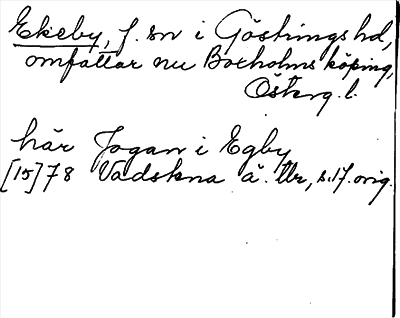 Ekeby, f. sn i Göstrings hd,
omfattar nu Boxholms köping,
Österg. l.
här Jogan i Egby
[15]78 Vadstena ä. tb, s. 17. orig.